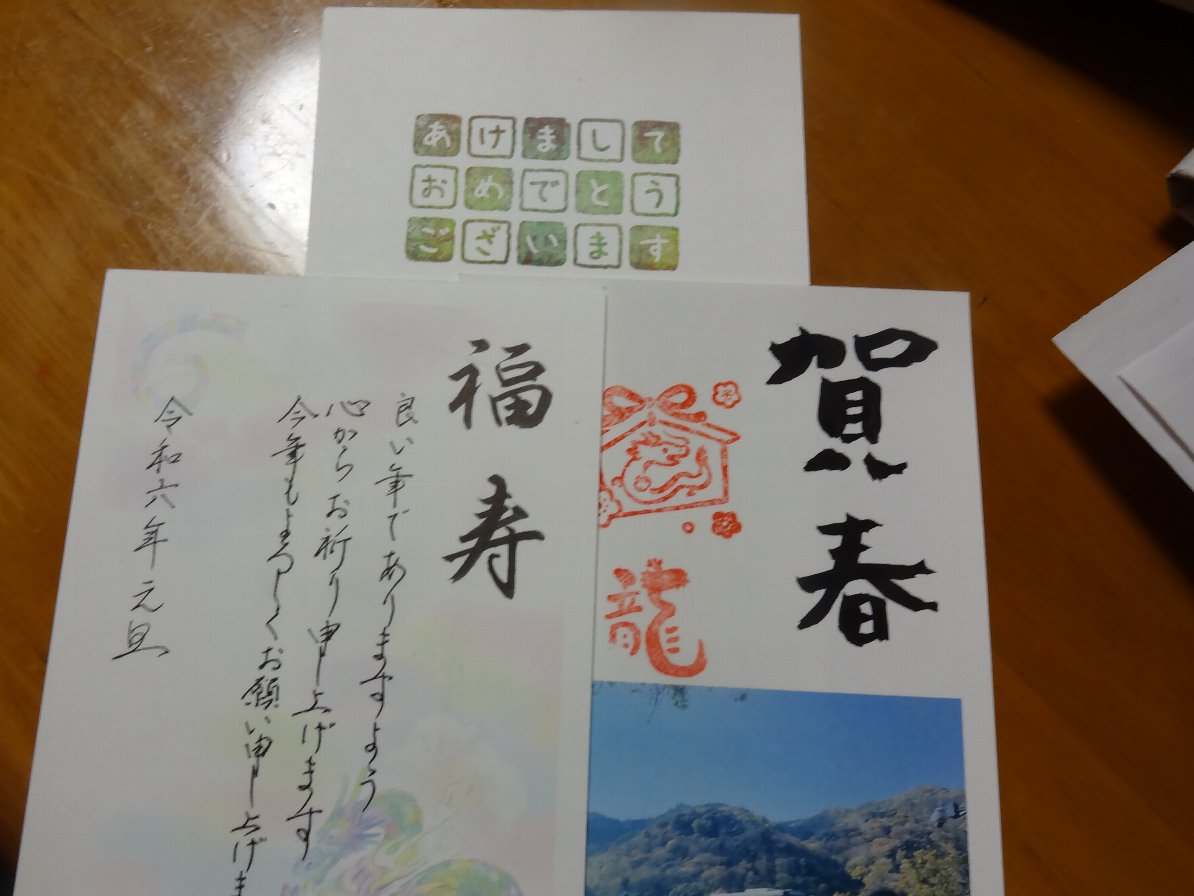 あけまして
おめでとう
ございます
賀春
龍
福寿
良い年でありますよう
心からお祈り申し上げます
今年もよろしくお願い申し上げま
令和六年元旦